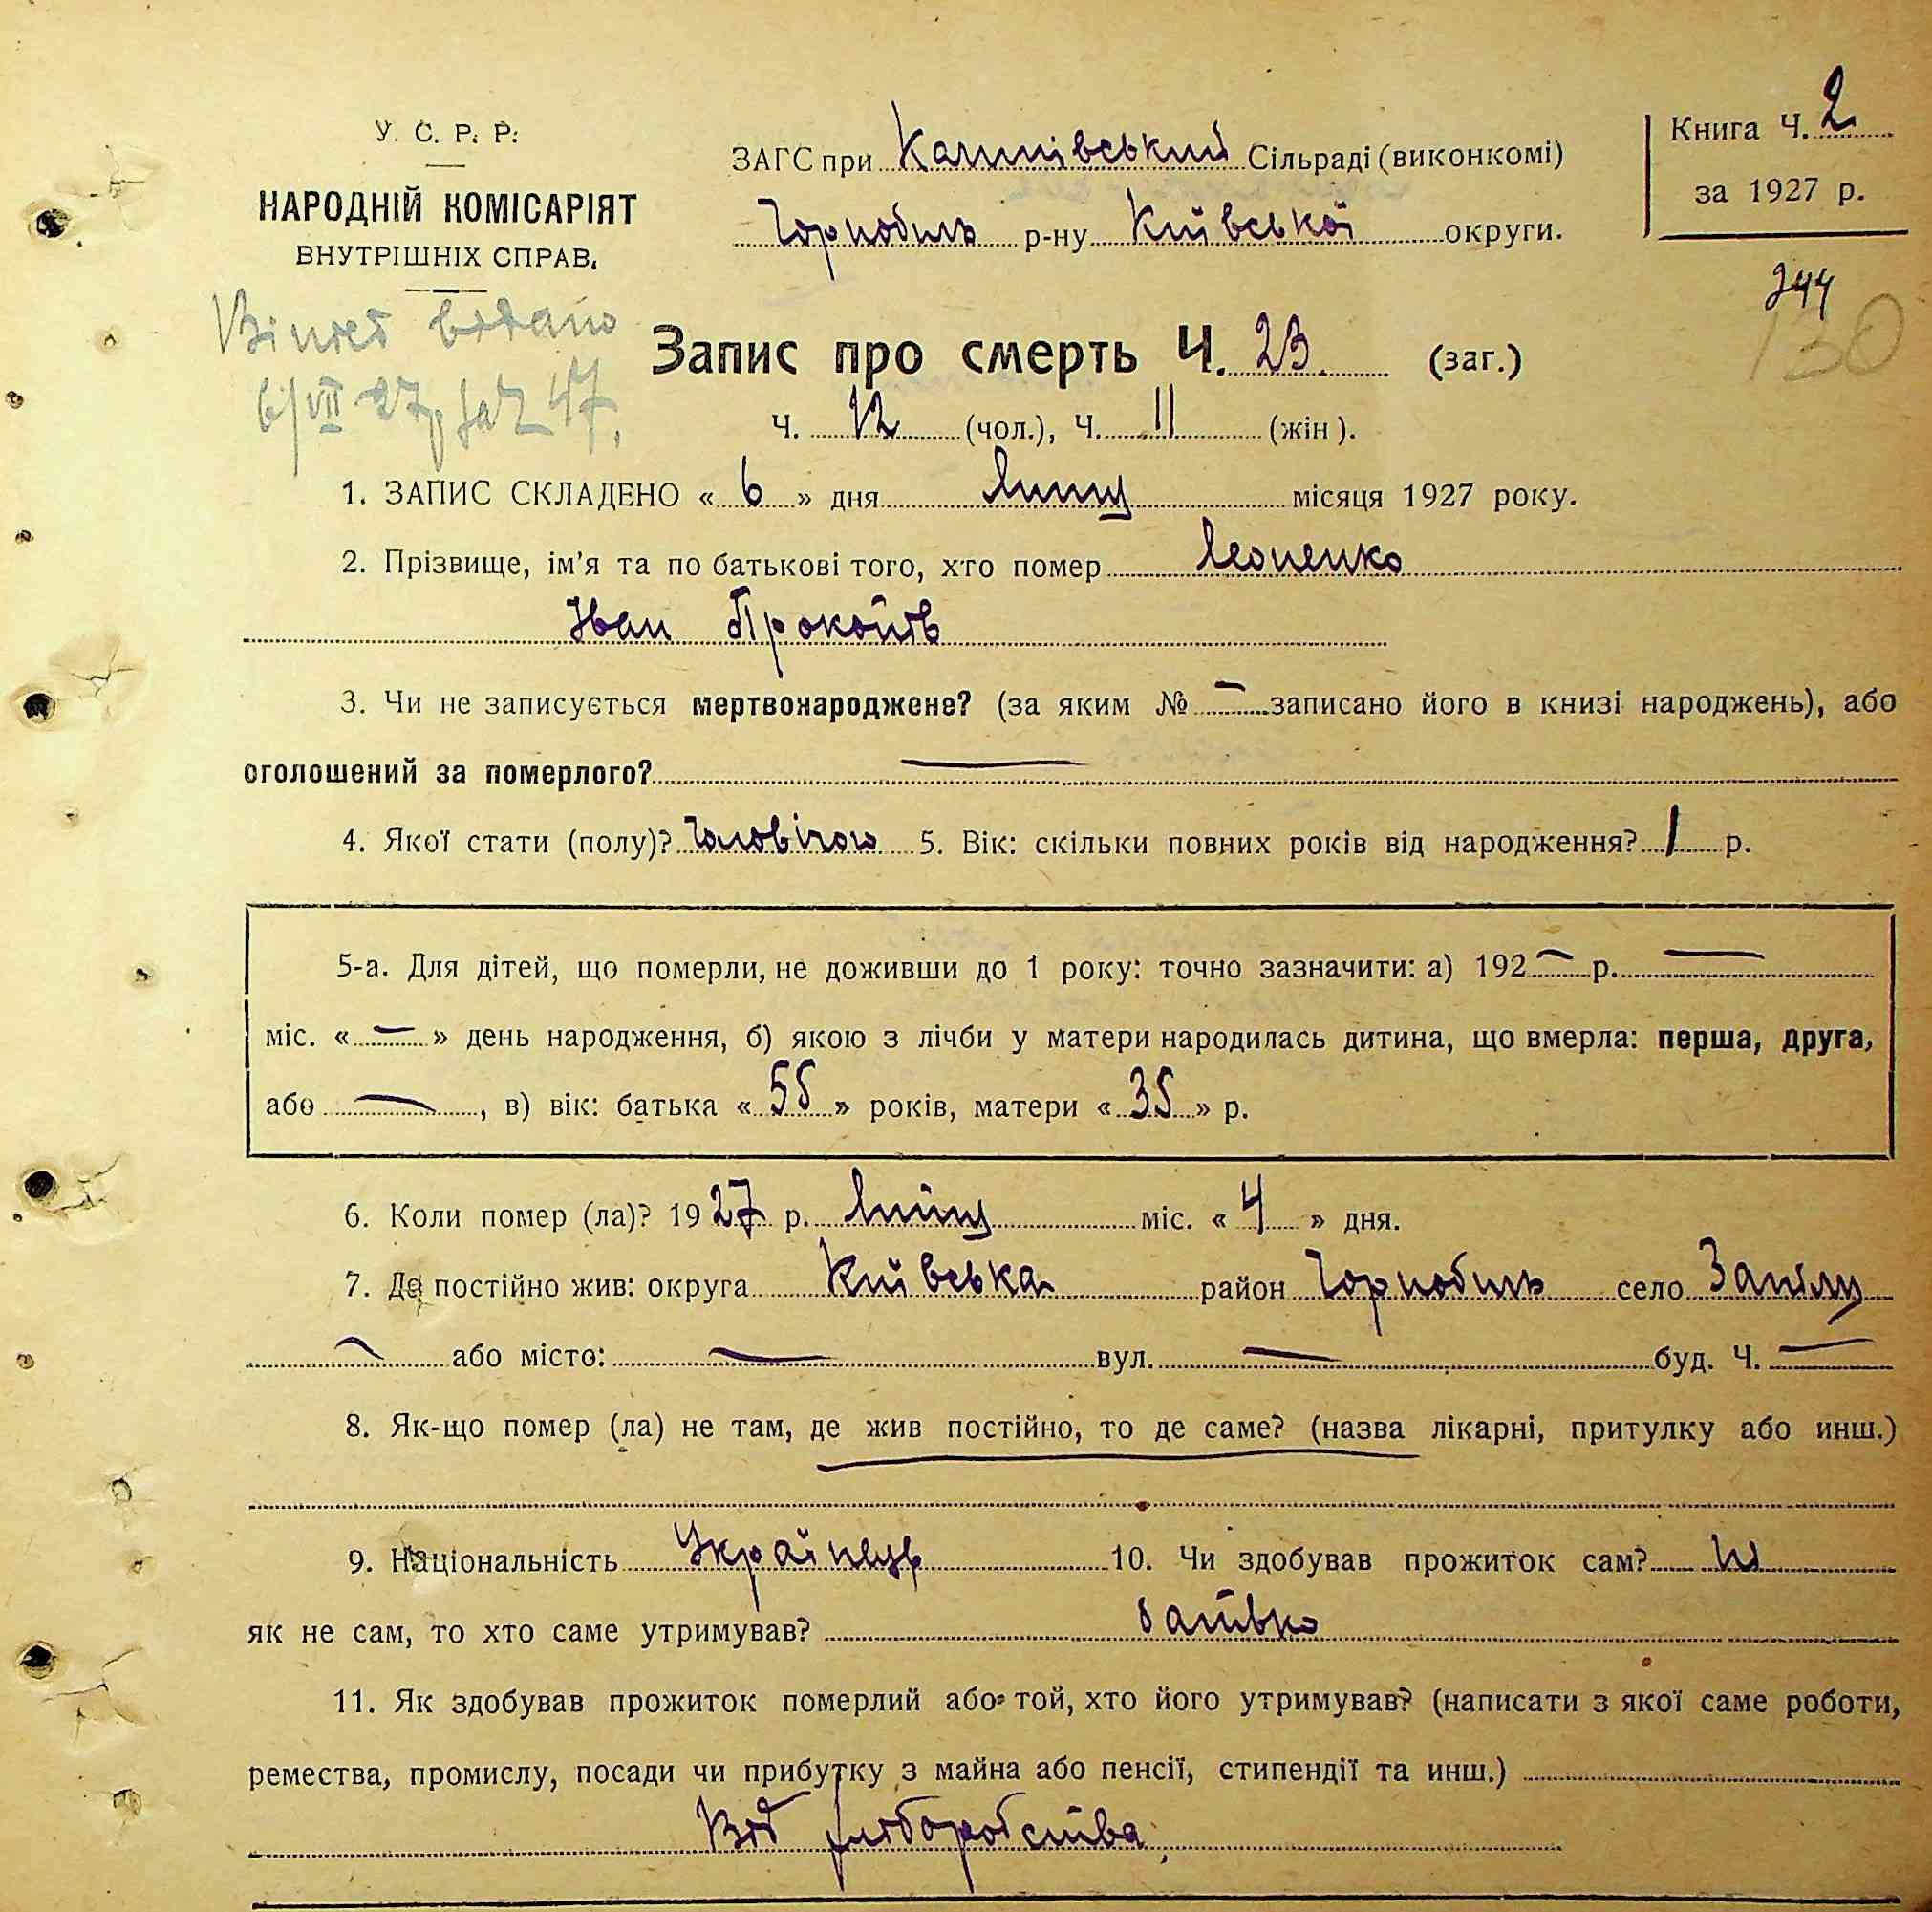 У. С. Р. Р.
НАРОДНІЙ КОМІСАРІЯТ
ВНУТРІШНІХ СПРАВ.
ЗАГС при Сільраді (виконкомі)
Чорнобиль р-ну Київської округи.
Книга Ч. 2
за 1927 р.
244
130
видано
6/VII 27р за № 47.
Запис про смерть Ч. 23. (заг.)
Ч. 12 (чол.), Ч. 11 (жін).
1. ЗАПИС СКЛАДЕНО « 6 » дня Липця місяця 1927 року.
2. Прізвище, ім'я та по батькові того, хто помер Леоненко
Іван Прокопів
3. Чи не записується мертвонароджене? (за яким № — записано його в книзі народжень), або
оголошений за померлого? —
4. Якої стати (полу)? Чоловічою 5. Вік: скільки повних років від народження? 1 р.
5-а. Для дітей, що померли, не доживши до 1 року: точно зазначити: а) 192 — р. —
міс. « — » день народження, б) якою з лічби у матери народилась дитина, що вмерла: перша, друга,
або — , в) вік: батька « 55 » років, матери « 35 » р.
6. Коли помер (ла)? 1927 р. Липця міс. « 4 » дня.
7. Де постійно жив: округа Київська район Чорнобиль село
— або місто: — вул. — буд. Ч. —
8. Як-що помер (ла) не там, де жив постійно, то де саме? (назва лікарні, притулку або инш.)
9. Національність Українець 10. Чи здобував прожиток сам? ні
як не сам, то хто саме утримував? батько
11. Як здобував прожиток померлий або той, хто його утримував? (написати з якої саме роботи,
ремества, промислу, посади чи прибутку з майна або пенсії, стипендії та инш.)
Від хліборобства